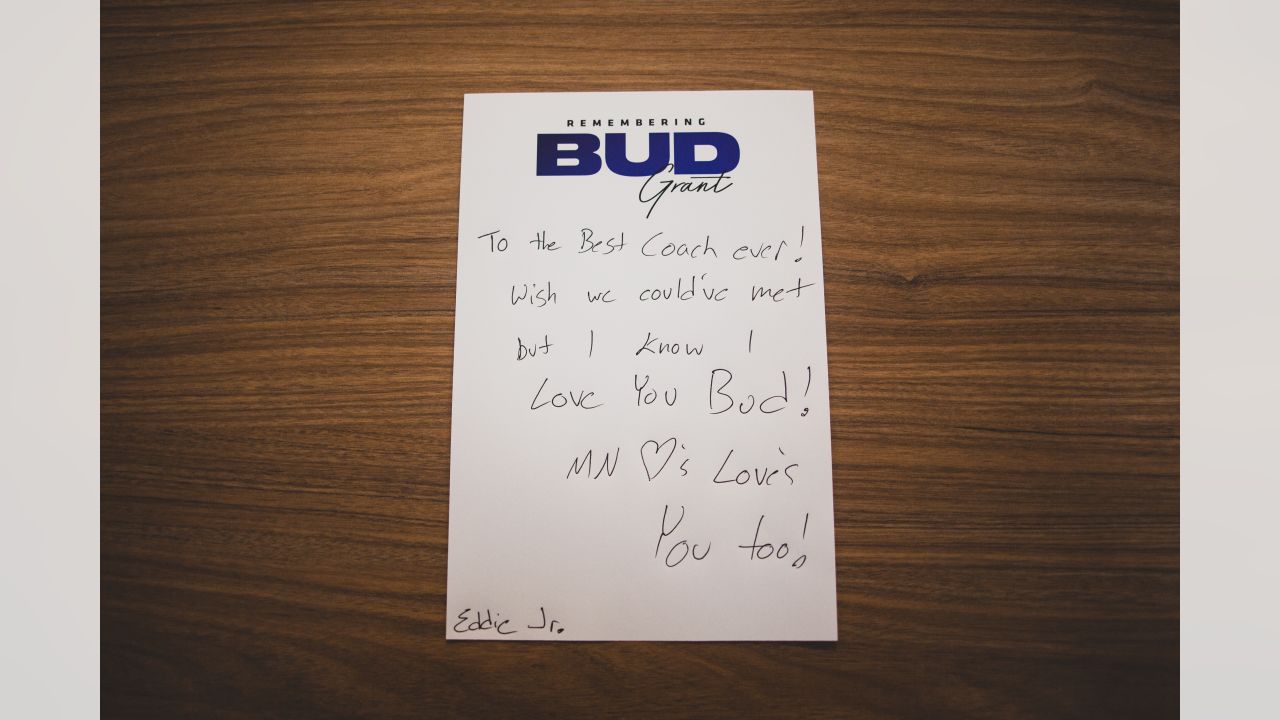 REMEMBERING
BUD
Grant
To the Best Coach ever!
Wish we could've met
but I know I
Love You Bud!
MN ♡'s Love's
You too!
Eddie Jr.